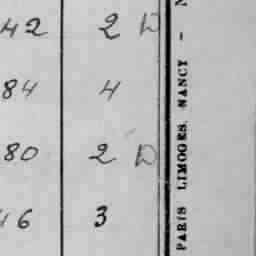 42 2 D
84 4
80 2 D
46 3
PARIS LIMOGES, NANCY -